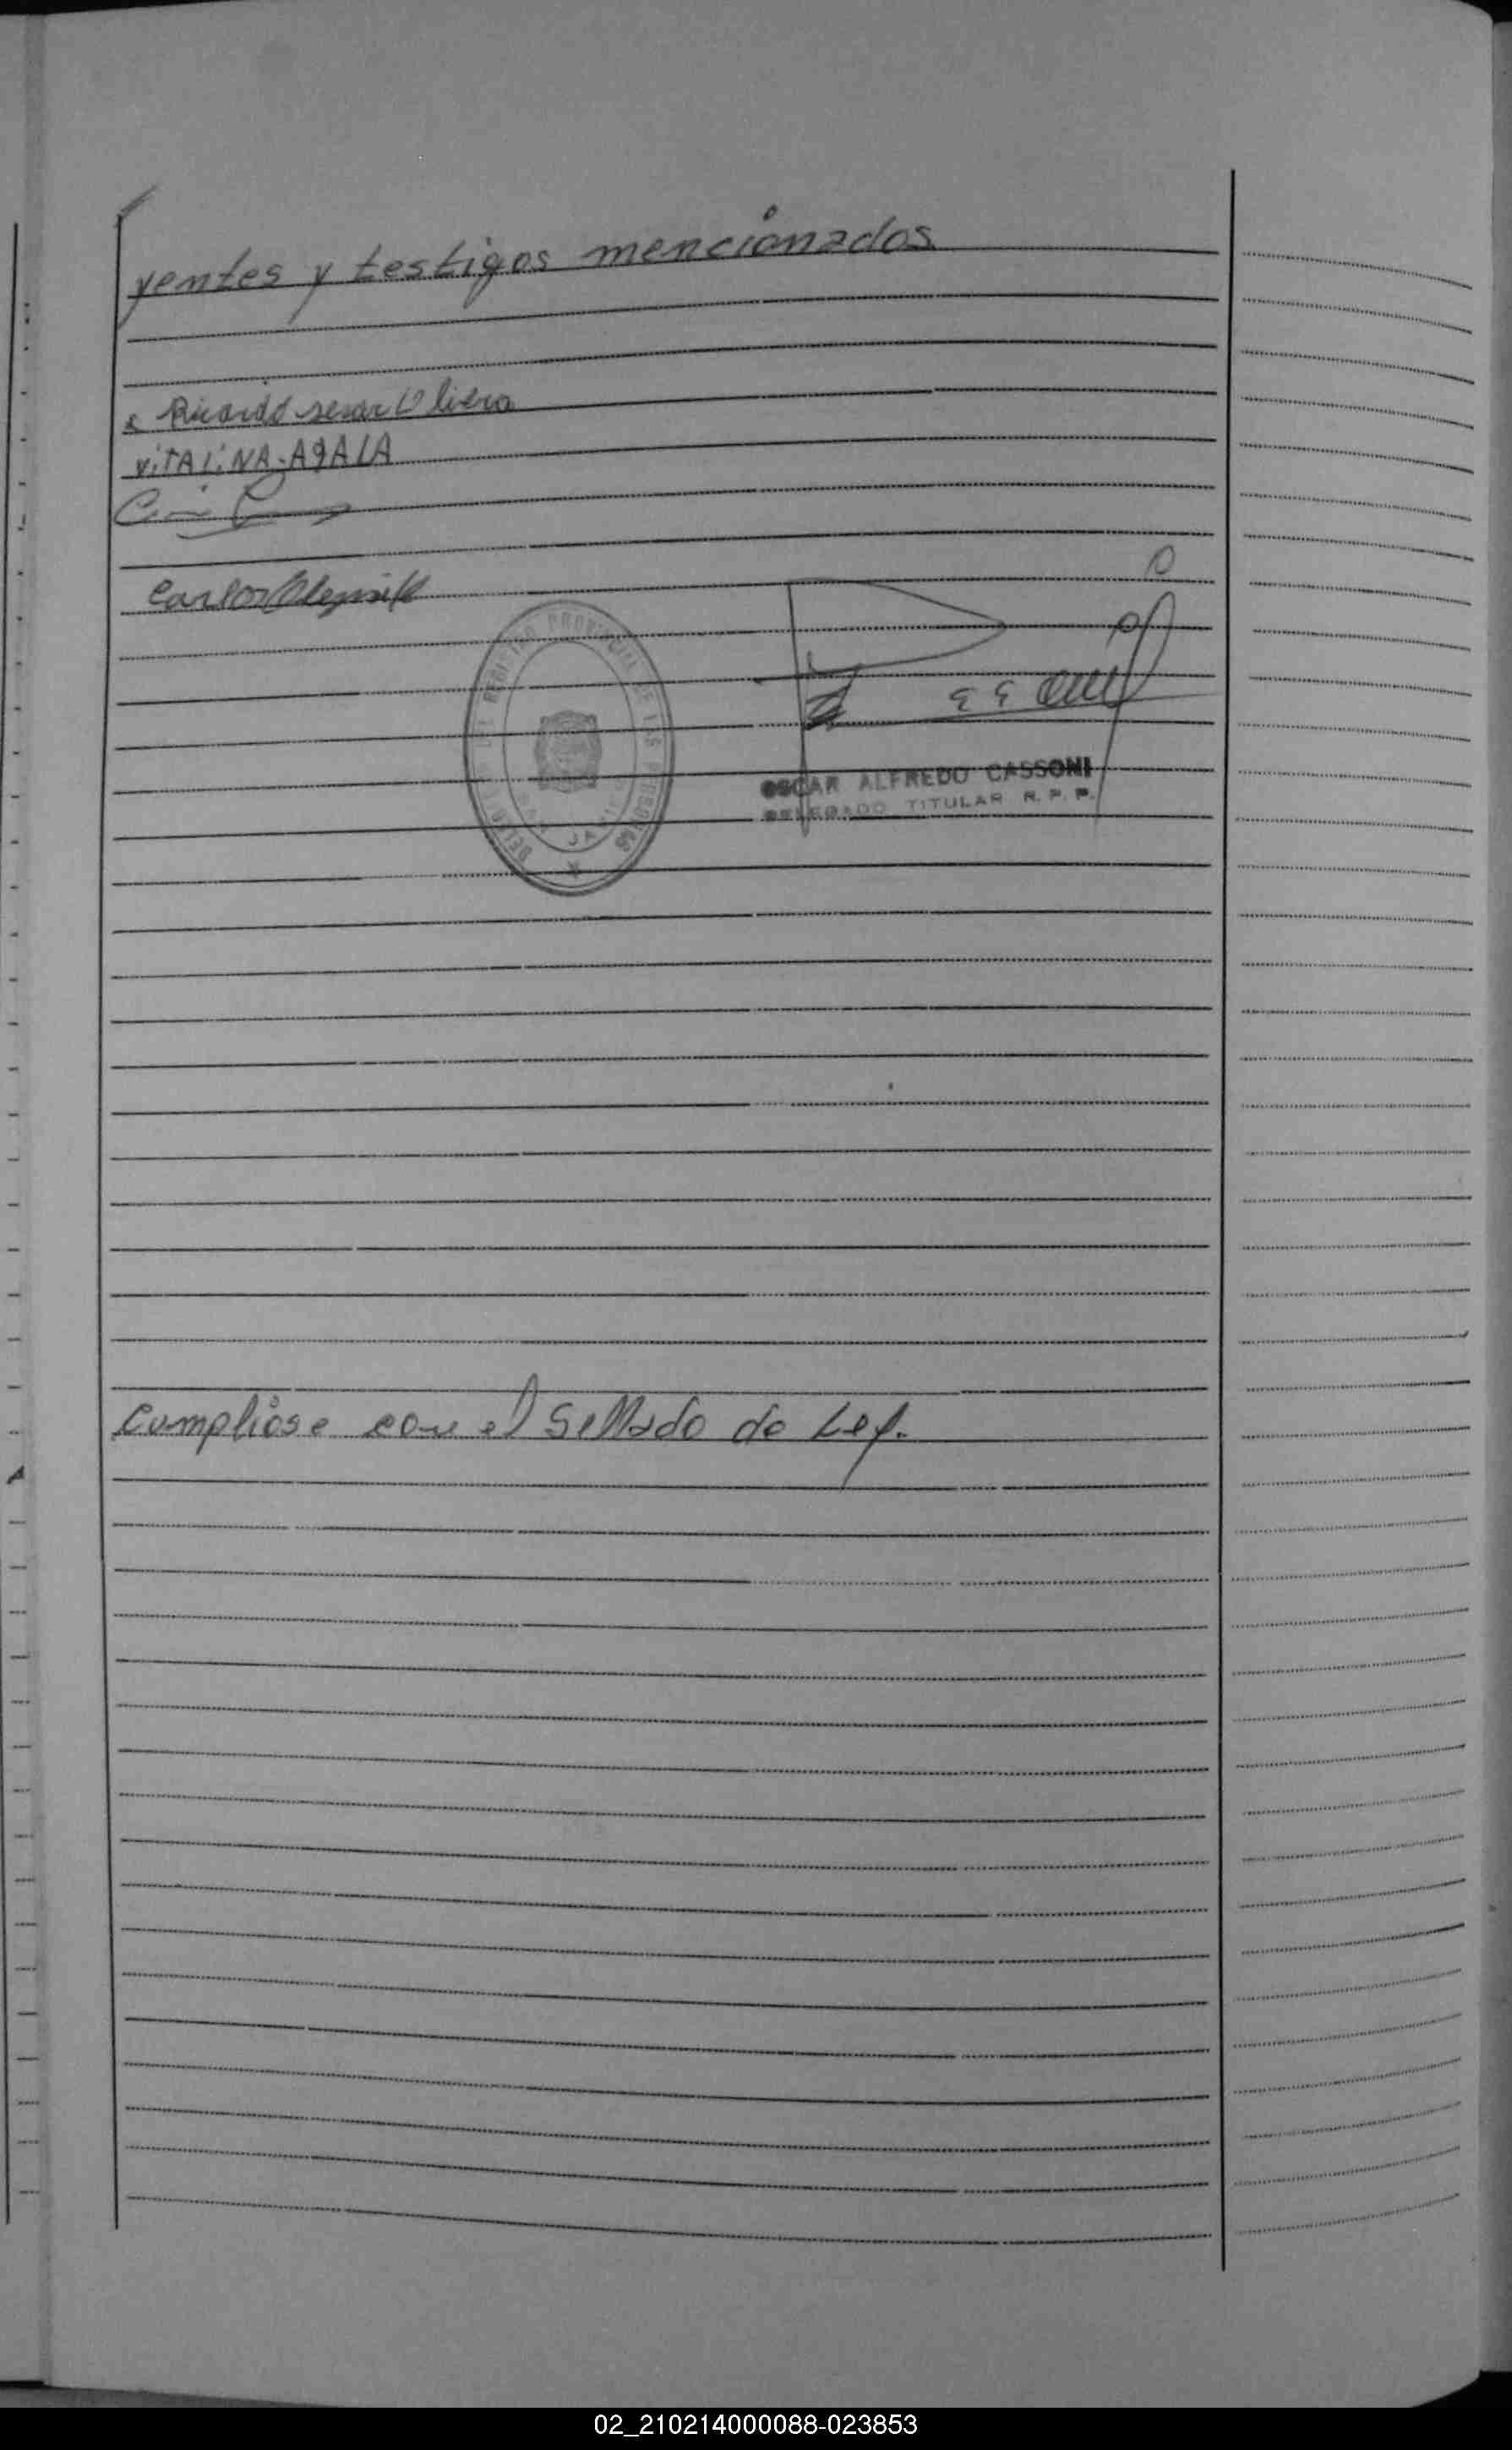 yentes y testigos mencionados
Ricardo sesar Oliera
ViTALiNA-AYALA
Carlos
REGISTRO PROVINCIAL DE LAS PERSONAS
OSCAR ALFREDO CASSONI
DELEGADO TITULAR R. P. P.
Cumpliose con el Sellado de Ley.
02_210214000088-023853